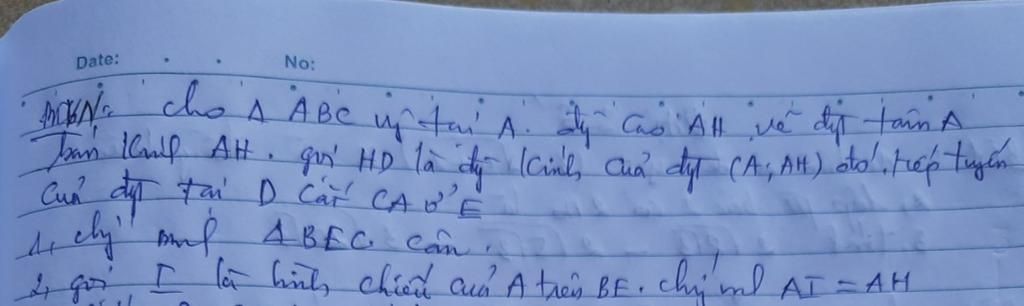 Date: No:
cho Δ ABC vg tại A. đg cao AH vẽ đgt tâm A
bán kính AH. gọi HD là đg kính của đgt (A; AH) đó. tiếp tuyến
của đgt tại D cắt CA ở E
1, chg minh Δ BEC cân.
2, gọi I là hình chiếu của A trên BE. chg m AI = AH